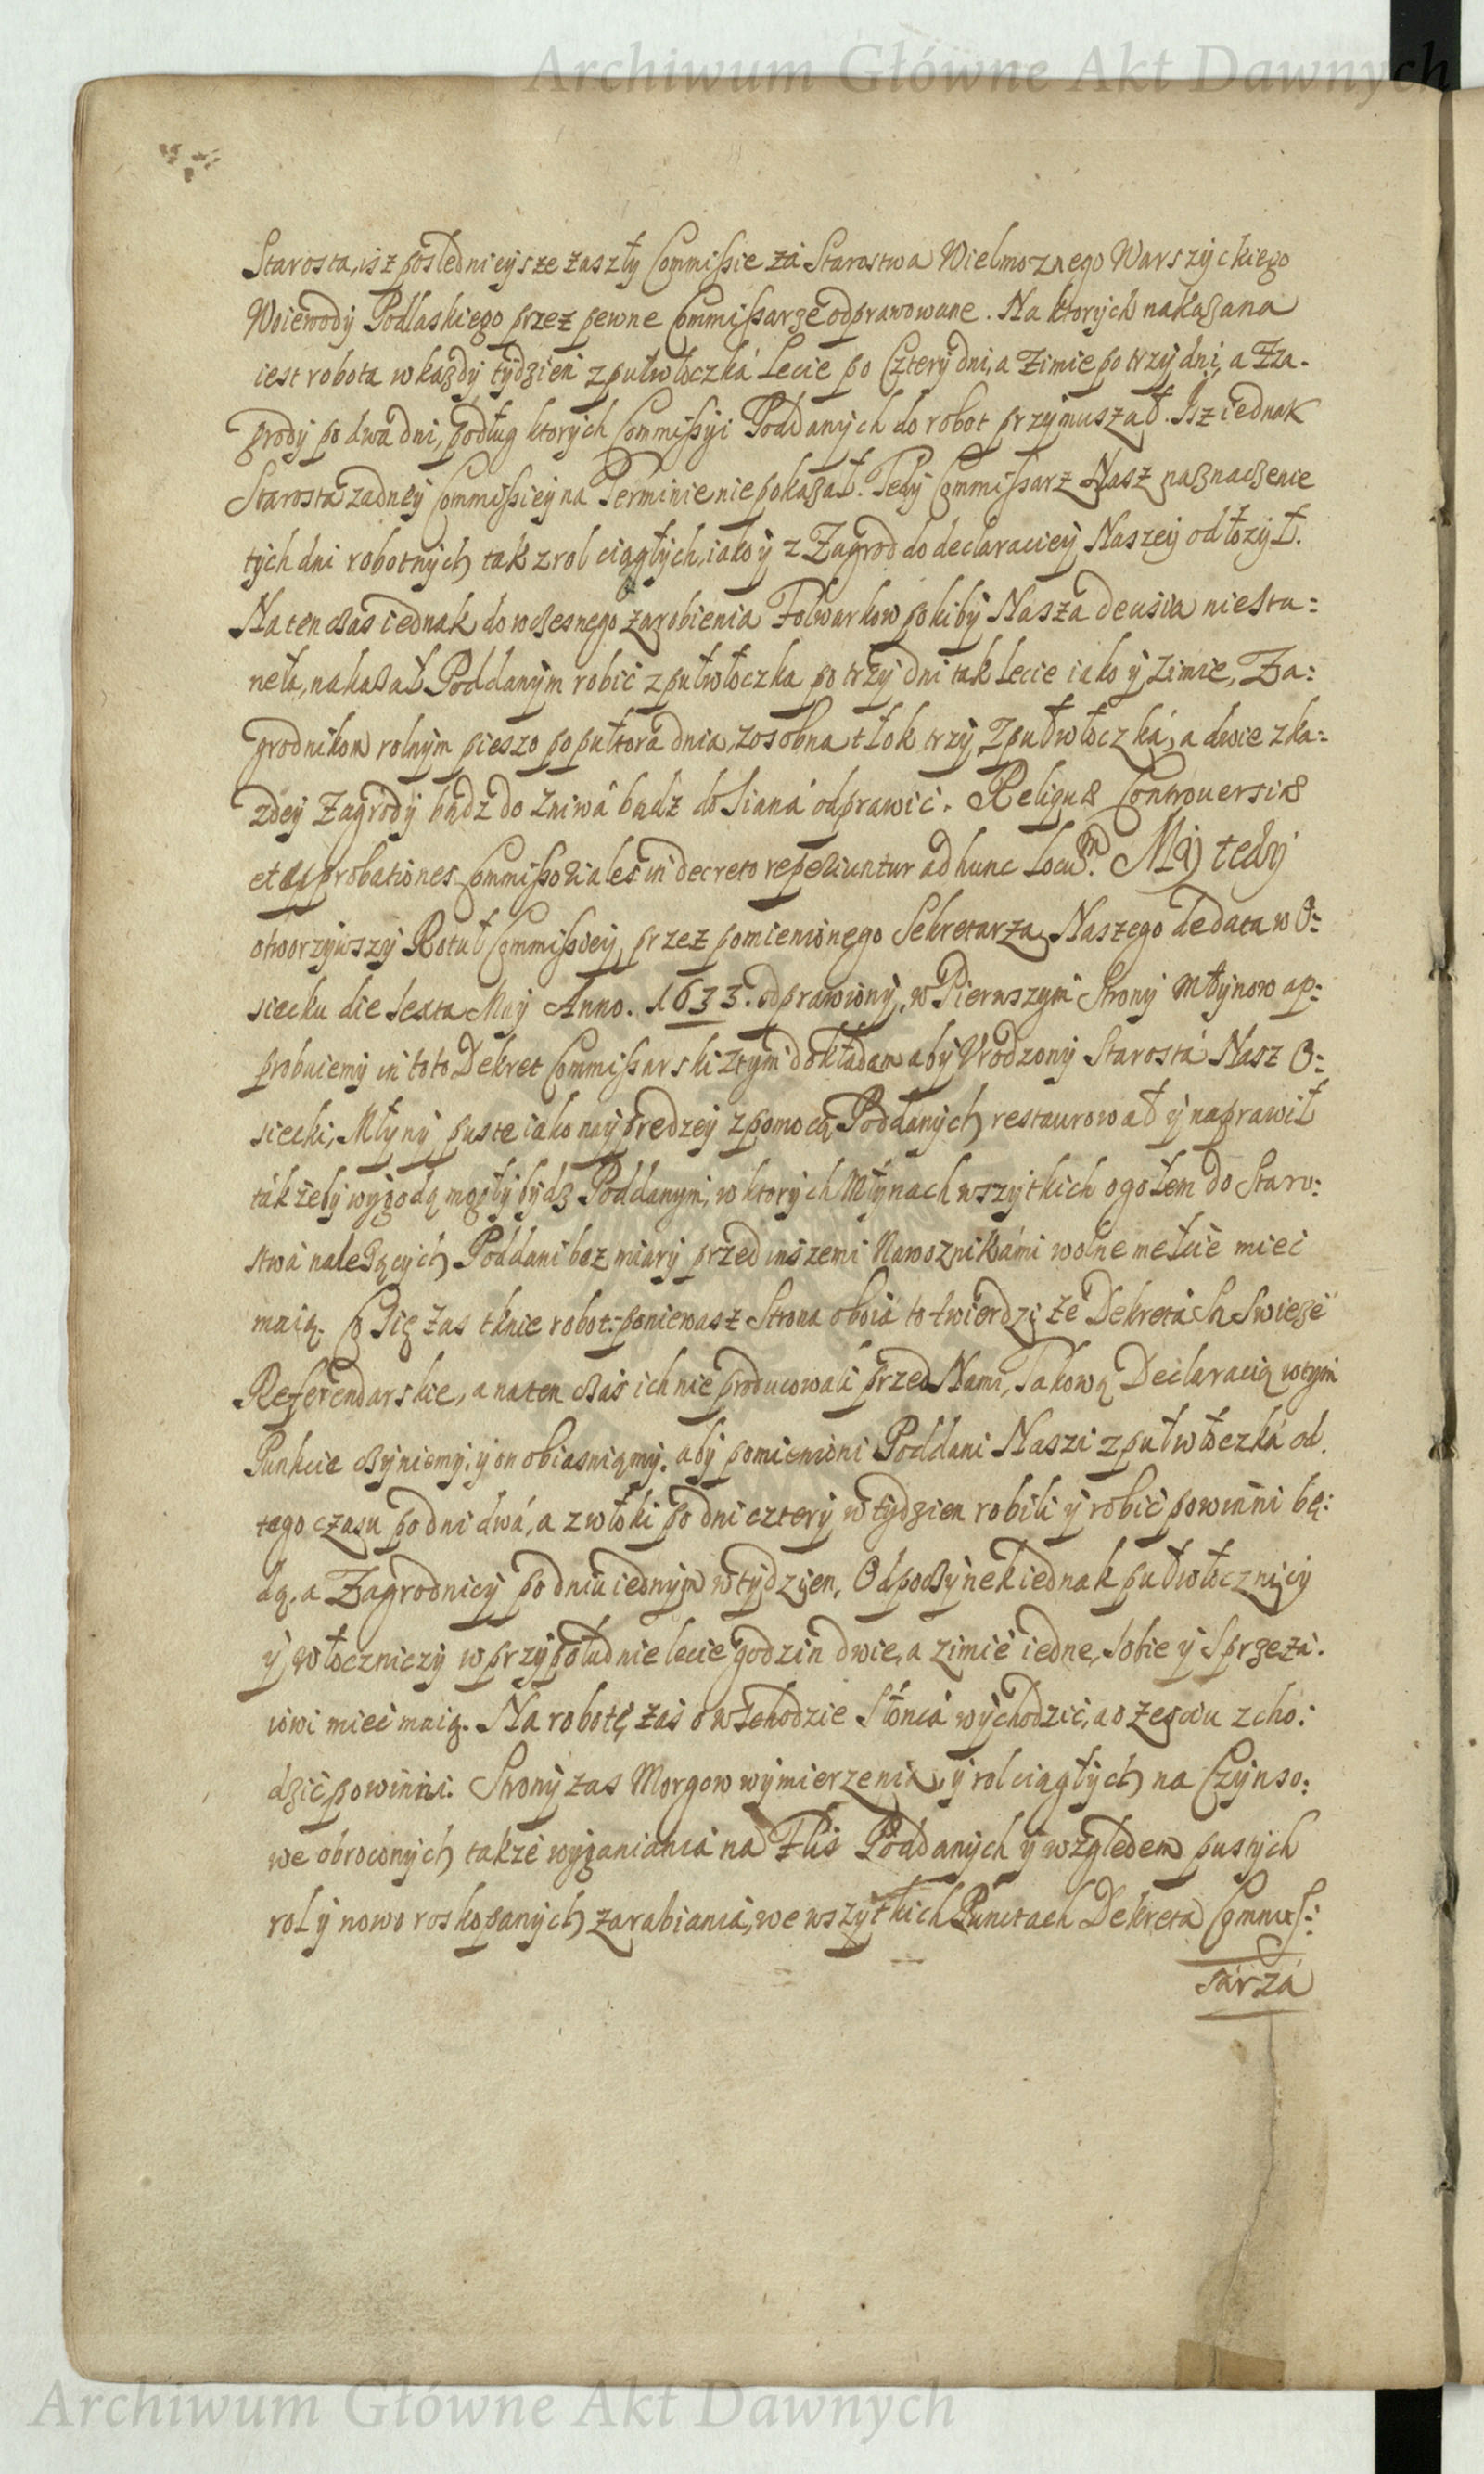 Archiwum Główne Akt Dawnych
Starosta, isz poslednieysze zaszły Commissie za Starostwa Wielmoznego Warszyckiego
Woiewody Podlaskiego przez pewne Commissarze odprawowane. Na ktorych nakazana
iest robota w kazdy tydzien z pułwłoczka Lecie po Cztery dni, a Zimie po trzy dni, a Zza-
grody po dwa dni, podług ktorych Commissyi Poddanych do robot przymuszał. Isz iednak
Starosta zadney Commissiey na Terminie nie pokazał. Tedy Commissarz Nasz naznaczenie
tych dni robotnych tak z rol ciągłych, iako y z Zagrod do declaraciey Naszey odłozył.
Na ten czas iednak do wczesnego zarobienia Folwarkow pokiby Nasza decisia niesta:
neła, nakazał Poddanym robic z pułwłoczka po trzy dni tak Lecie iako y Zimie, Za:
grodnikom rolnym pieszo po pułtora dnia, zosobna tłok trzy z pułwłoczka, a dwie z ka:
zdey Zagrody bądz do Zniwa bądz do Siana odprawić. Reliquæ Controuersiæ
et approbationes Commissoriales in decreto reperiuntur ad hunc Locum. My tedy
otworzywszy Rotuł Commissiey, przez pomienionego Sekretarza Naszego de data w O:
siecku die sexta May Anno. 1633. odprawioney, w Pierwszym Strony Młynow ap:
probuiemy in toto Dekret Commissarski z tym dokładem aby Vrodzony Starosta Nasz O:
siecki, Młyny puste iako nayprędzey z pomocą Poddanych restaurował y naprawił
tak żeby wygodą mogły bydz Poddanym, w ktorych Młynach wszytkich ogołem do Staro:
stwa nalezących Poddani bez miary przed inszemi Nawoznikami wolne mełcie miec
maią. Co się zas tknie robot: poniewasz Strona oboia to twierdzi że Dekreta Są Swieże
Referendarskie, a na ten czas ich nie producowali przed Nami, Takową Declaracią w tym
Punkcie czyniemy, y on obiasniamy. aby pomienioni Poddani Naszi z pułwłoczka od
tego czasu po dni dwa, a z włoki po dni cztery w tydzien robili y robić powinni bę:
dą, a Zagrodnicy po dniu iednym w tydzien, Odpoczynek iednak pułwłoczniczy
y włoczniczy w przypołudnie lecie godzin dwie, a zimie iedne, sobie y sprzęża:
iowi mieć maią. Na robotę zas o wschodzie Słonca wychodzić, a o zesciu zcho:
dzić powinni. Strony zas Morgow wymierzenia, y rol ciągłych na Czynso:
we obroconych także wyganiania na Flis Poddanych y względem pustych
rol y nowo roskopanych zarabiania, we wszytkich Punctach Dekreta Commis:
sarza
Archiwum Główne Akt Dawnych